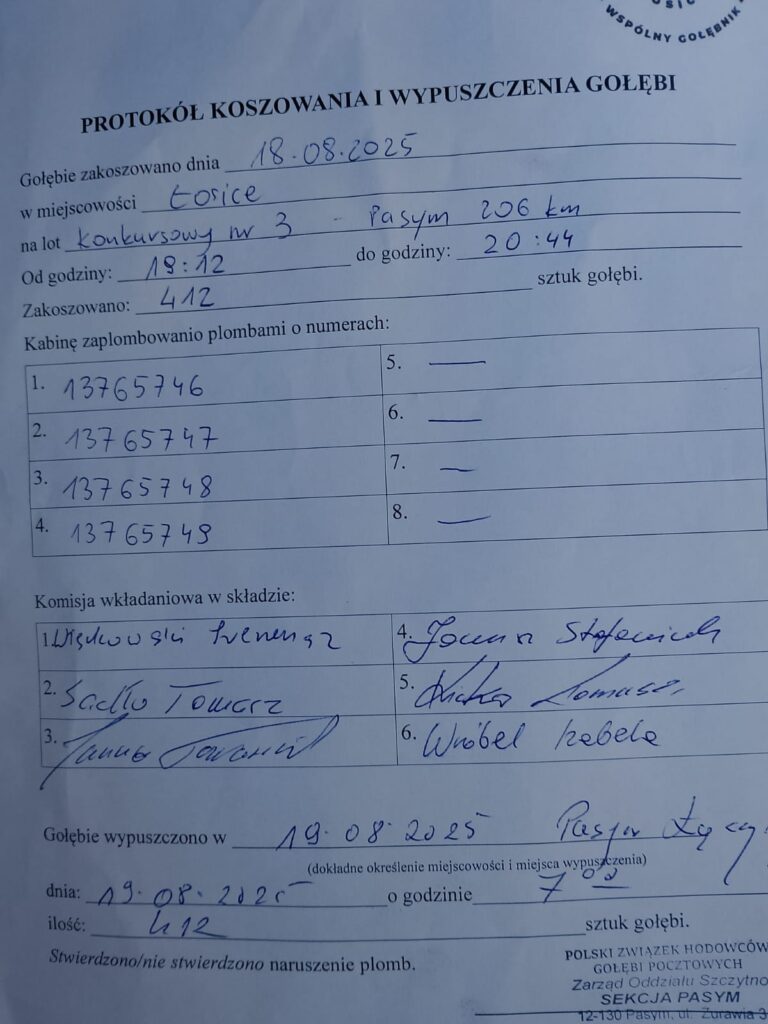 WSPÓLNY GOŁĘBNIK
PROTOKÓŁ KOSZOWANIA I WYPUSZCZENIA GOŁĘBI
Gołębie zakoszowano dnia 18.08.2025
w miejscowości Łosice
na lot konkursowy nr 3 - Pasym 206 km
Od godziny: 19:12 do godziny: 20:44
Zakoszowano: 412 sztuk gołębi.
Kabinę zaplombowanio plombami o numerach:
1. 13765746 5. —
2. 13765747 6. —
3. 13765748 7. —
4. 13765749 8. —
Komisja wkładaniowa w składzie:
1. Ireneusz 4. Joanna
2. Sadło Tomasz 5. Tomasz
3. 6. Wróbel Izabela
Gołębie wypuszczono w 19.08.2025 Pasym
(dokładne określenie miejscowości i miejsca wypuszczenia)
dnia: 19.08.2025 o godzinie 7 00
ilość: 412 sztuk gołębi.
Stwierdzono/nie stwierdzono naruszenie plomb.
POLSKI ZWIĄZEK HODOWCÓW
GOŁĘBI POCZTOWYCH
Zarząd Oddziału Szczytno
SEKCJA PASYM
12-130 Pasym, ul. Żurawia 3